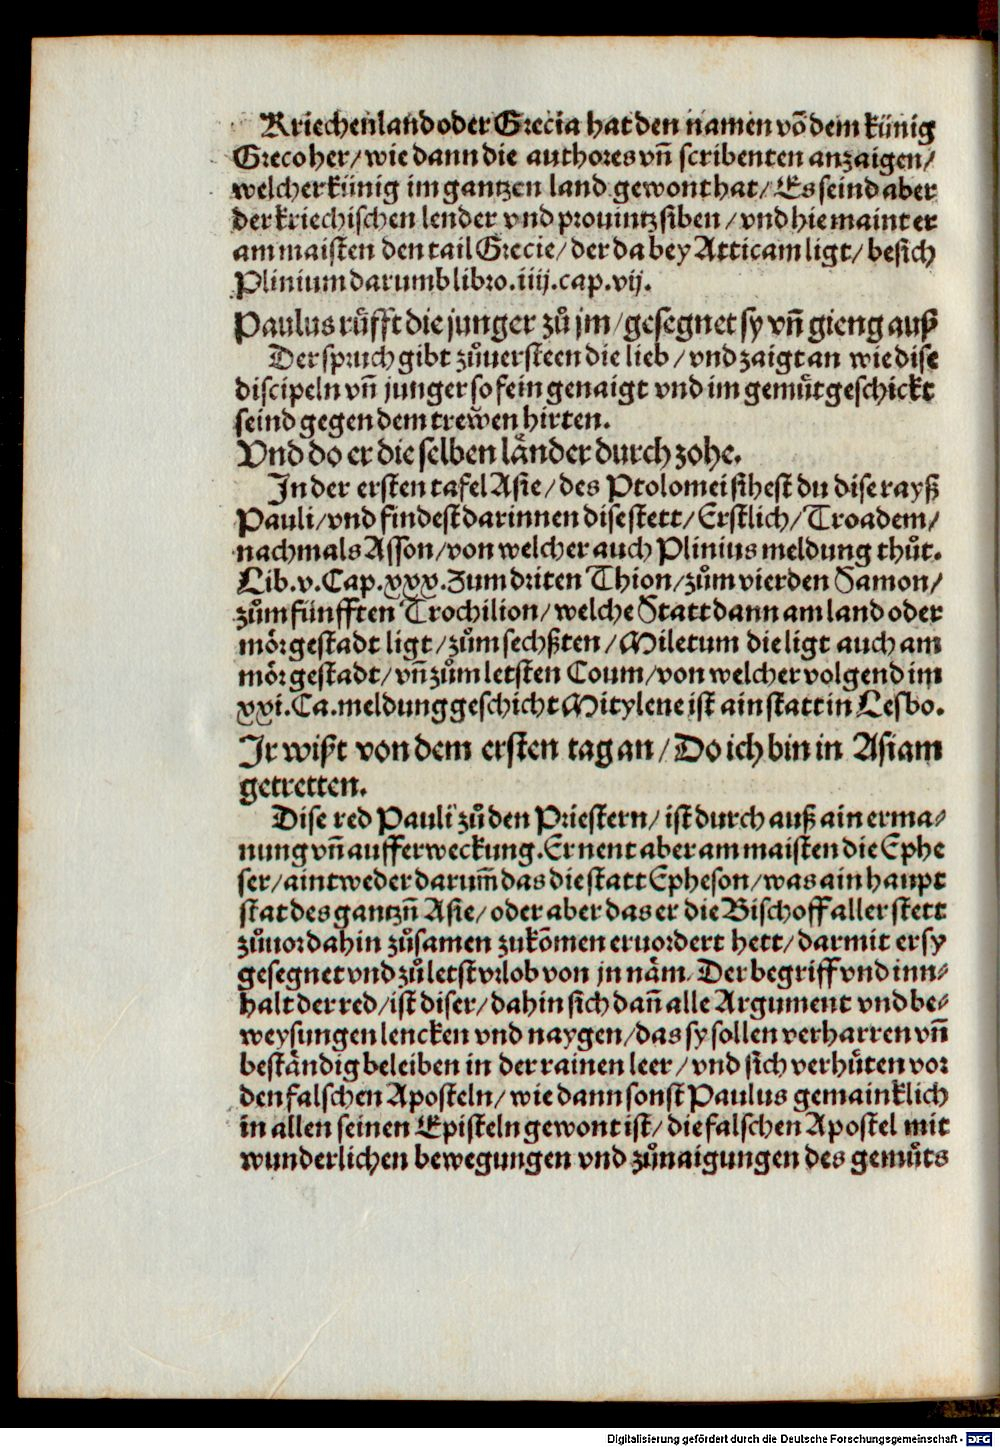 Kriechenland oder Grecia hat den namen võ dem künig
Greco her/ wie dann die authores vñ scribenten anzaigen/
welcher künig im gantzen land gewont hat/ Es seind aber
der kriechischen lender vnd prouintz siben/ vnd hie maint er
am maisten den tail Grecie/ der da bey Atticam ligt/ besich
Plinium darumb libro.iiij.cap.vij.
Paulus růfft die junger zů jm/ gesegnet sy vñ gieng auß
Der spruch gibt zůuersteen die lieb/ vnd zaigt an wie dise
discipeln vñ junger so fein genaigt vnd im gemůt geschickt
seind gegen dem trewen hirten.
Vnd do er die selben länder durch zohe.
In der ersten tafel Asie/ des Ptolomei sihest du dise rayß
Pauli/ vnd findest darinnen dise stett/ Erstlich/ Troadem/
nachmals Asson/ von welcher auch Plinius meldung thůt.
Lib.v.Cap.xxx. Zum driten Thion/ zům vierden Samon/
zům fünfften Trochilion/ welche Statt dann am land oder
mör gestadt ligt/ zům sechßten/ Miletum die ligt auch am
mör gestadt/ vñ zům letsten Coum/ von welcher volgend im
xxi.Ca.meldung geschicht Mitylene ist ain statt in Lesbo.
Ir wißt von dem ersten tag an/ Do ich bin in Asiam
getretten.
Dise red Pauli zů den Priestern/ ist durch auß ain erma⸗
nung vñ aufferweckung. Er nent aber am maisten die Ephe
ser/ aintweder darum̃ das die statt Epheson/ was ain haupt
stat des gantzñ Asie/ oder aber das er die Bischoff aller stett
zůuor dahin zůsamen zukõmen eruordert hett/ darmit er sy
gesegnet vnd zů letst vrlob von jn näm. Der begriff vnd inn⸗
halt der red/ ist diser/ dahin sich dañ alle Argument vnd be⸗
weysungen lencken vnd naygen/ das sy sollen verharren vñ
beständig beleiben in der rainen leer/ vnd sich verhůten vor
den falschen Aposteln/ wie dann sonst Paulus gemainklich
in allen seinen Episteln gewont ist/ die falschen Apostel mit
wunderlichen bewegungen vnd zůnaigungen des gemůts
Digitalisierung gefördert durch die Deutsche Forschungsgemeinschaft - DFG